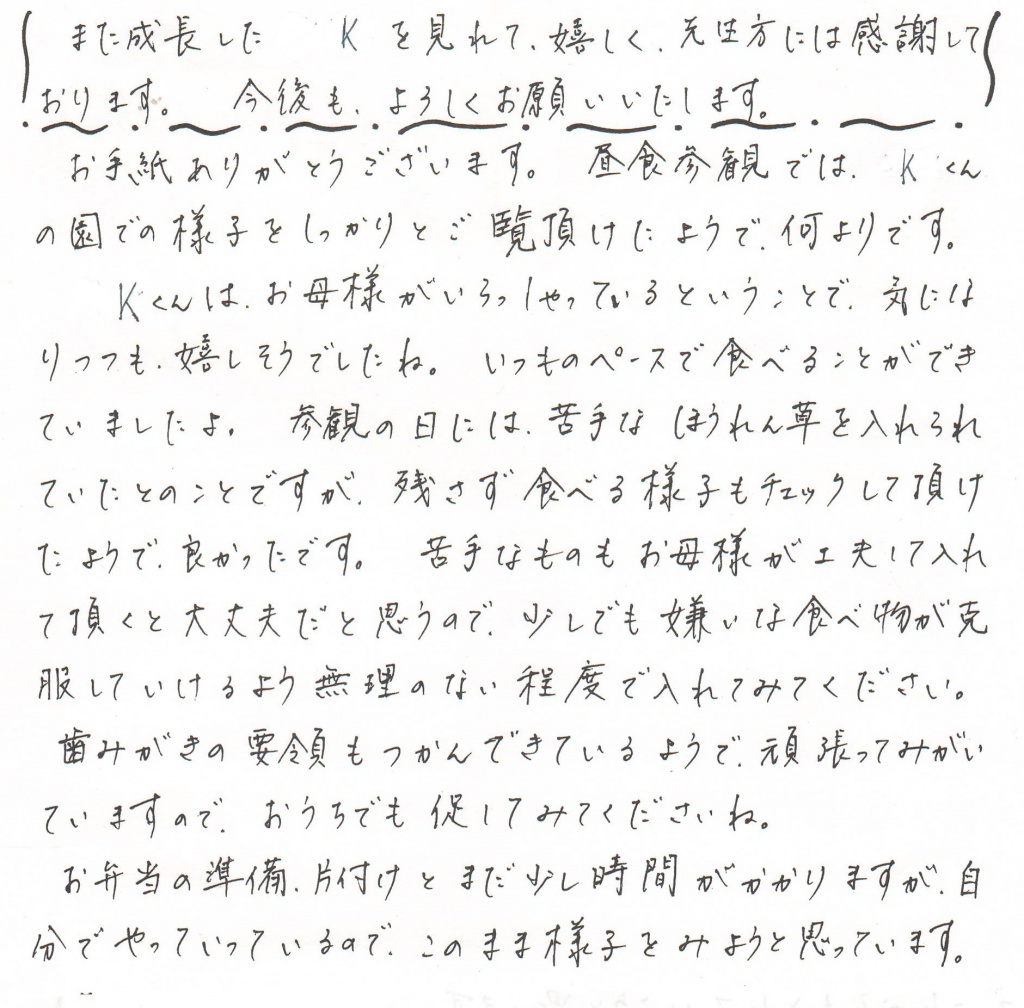 また成長した K を見れて、嬉しく、先生方には感謝して
おります。 今後も、よろしくお願いいたします。
お手紙ありがとうございます。 昼食参観では、Kくん
の園での様子をしっかりとご覧頂けたようで、何よりです。
Kくんは、お母様がいらっしゃっているということで、気にな
りつつも、嬉しそうでしたね。 いつものペースで食べることができ
ていましたよ。 参観の日には、苦手なほうれん草を入れられ
ていたとのことですが、残さず食べる様子もチェックして頂け
たようで、良かったです。 苦手なものもお母様が工夫して入れ
て頂くと大丈夫だと思うので、少しでも嫌いな食べ物が克
服していけるよう無理のない程度で入れてみてください。
歯みがきの要領もつかんできているようで、頑張ってみがい
ていますので、おうちでも促してみてくださいね。
お弁当の準備、片付けとまだ少し時間がかかりますが、自
分でやっていっているので、このまま様子をみようと思っています。